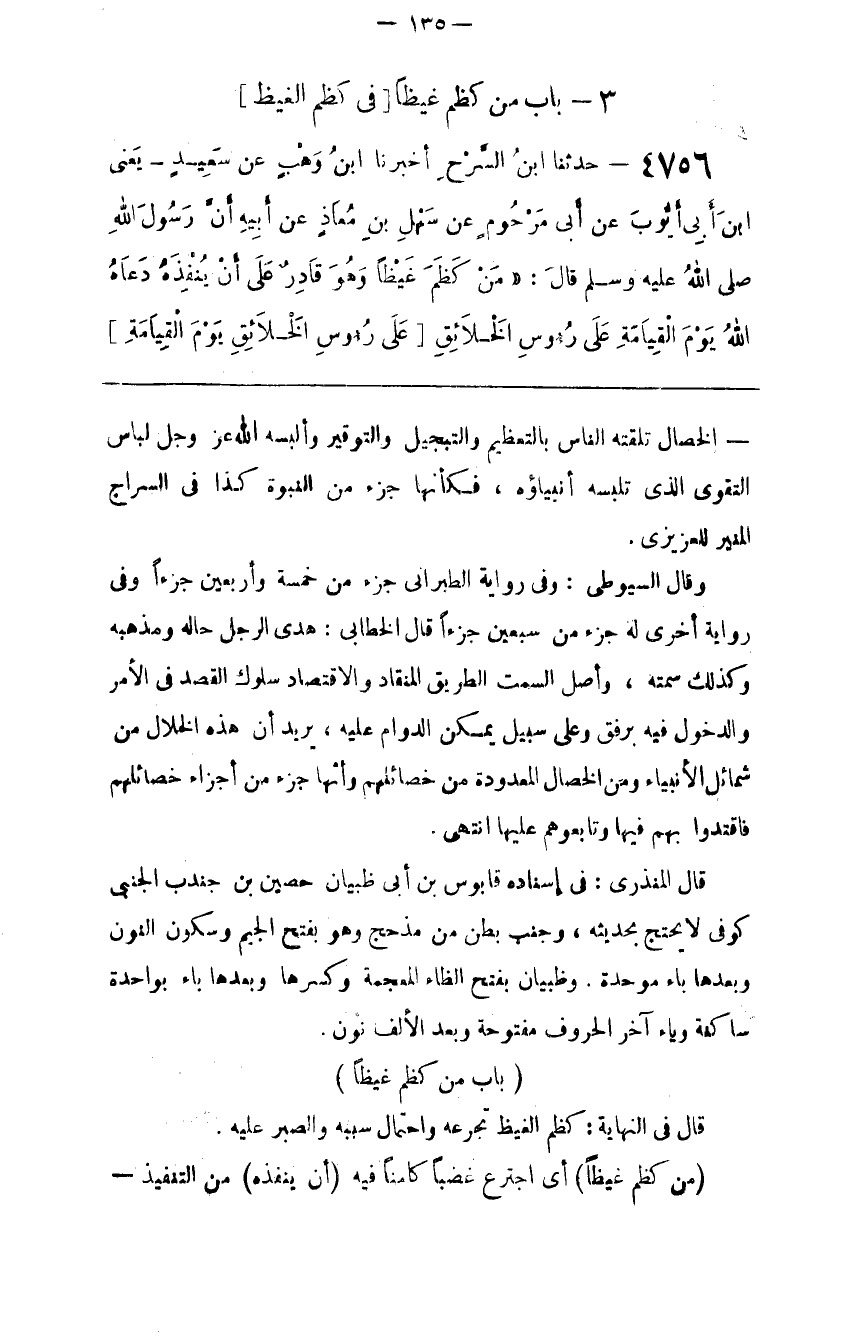 — ١٣٥ —
٣ — باب من كظم غيظاً [ فى كظم الغيظ ]
٤٧٥٦ — حدثنا ابنُ السَّرْحِ أخبرنا ابنُ وَهْبٍ عن سَعِيدٍ ـ يَعْنِى
ابنَ أَبِى أَيُّوبَ عن أَبى مَرْحُومٍ عن سَهْلِ بنِ مُعَاذٍ عن أَبِيهِ أَنَّ رَسُولَ اللهِ
صلى اللهُ عليه وسلم قالَ : « مَنْ كَظَمَ غَيْظاً وَهُوَ قَادِرٌ عَلَى أَنْ يُنْفِذَهُ دَعَاهُ
اللهُ يَوْمَ الْقِيَامَةِ عَلَى رُءوسِ الْخَلَائِقِ [ عَلَى رُءوسِ الْخَلَائِقِ يَوْمَ الْقِيَامَةِ ]
— الخصال تلقته الناس بالتعظيم والتبجيل والتوقير وألبسه الله عز وجل لباس
التقوى الذى تلبسه أنبياؤه ، فكأنها جزء من النبوة كذا فى السراج
المنير للعزيزى .
وقال السيوطى : وفى رواية الطبرانى جزء من خمسة وأربعين جزءاً وفى
رواية أخرى له جزء من سبعين جزءاً قال الخطابى : هدى الرجل حاله ومذهبه
وكذلك سمته ، وأصل السمت الطريق المنقاد والاقتصاد سلوك القصد فى الأمر
والدخول فيه برفق وعلى سبيل يمكن الدوام عليه ، يريد أن هذه الخلال من
شمائل الأنبياء ومن الخصال المعدودة من خصائلهم وأنها جزء من أجزاء خصائلهم
فاقتدوا بهم فيها وتابعوهم عليها انتهى .
قال المنذرى : فى إسناده قابوس بن أبى ظبيان حصين بن جندب الجنبى
كوفى لا يحتج بحديثه ، وجنب بطن من مذحج وهو بفتح الجيم وسكون النون
وبعدها باء موحدة . وظبيان بفتح الظاء المعجمة وكسرها وبعدها باء بواحدة
ساكنة وياء آخر الحروف مفتوحة وبعد الألف نون .
( باب من كظم غيظاً )
قال فى النهاية : كظم الغيظ تجرعه واحتمال سببه والصبر عليه .
(من كظم غيظاً) أى اجترع غضباً كامناً فيه (أن ينفذه) من التنفيذ —